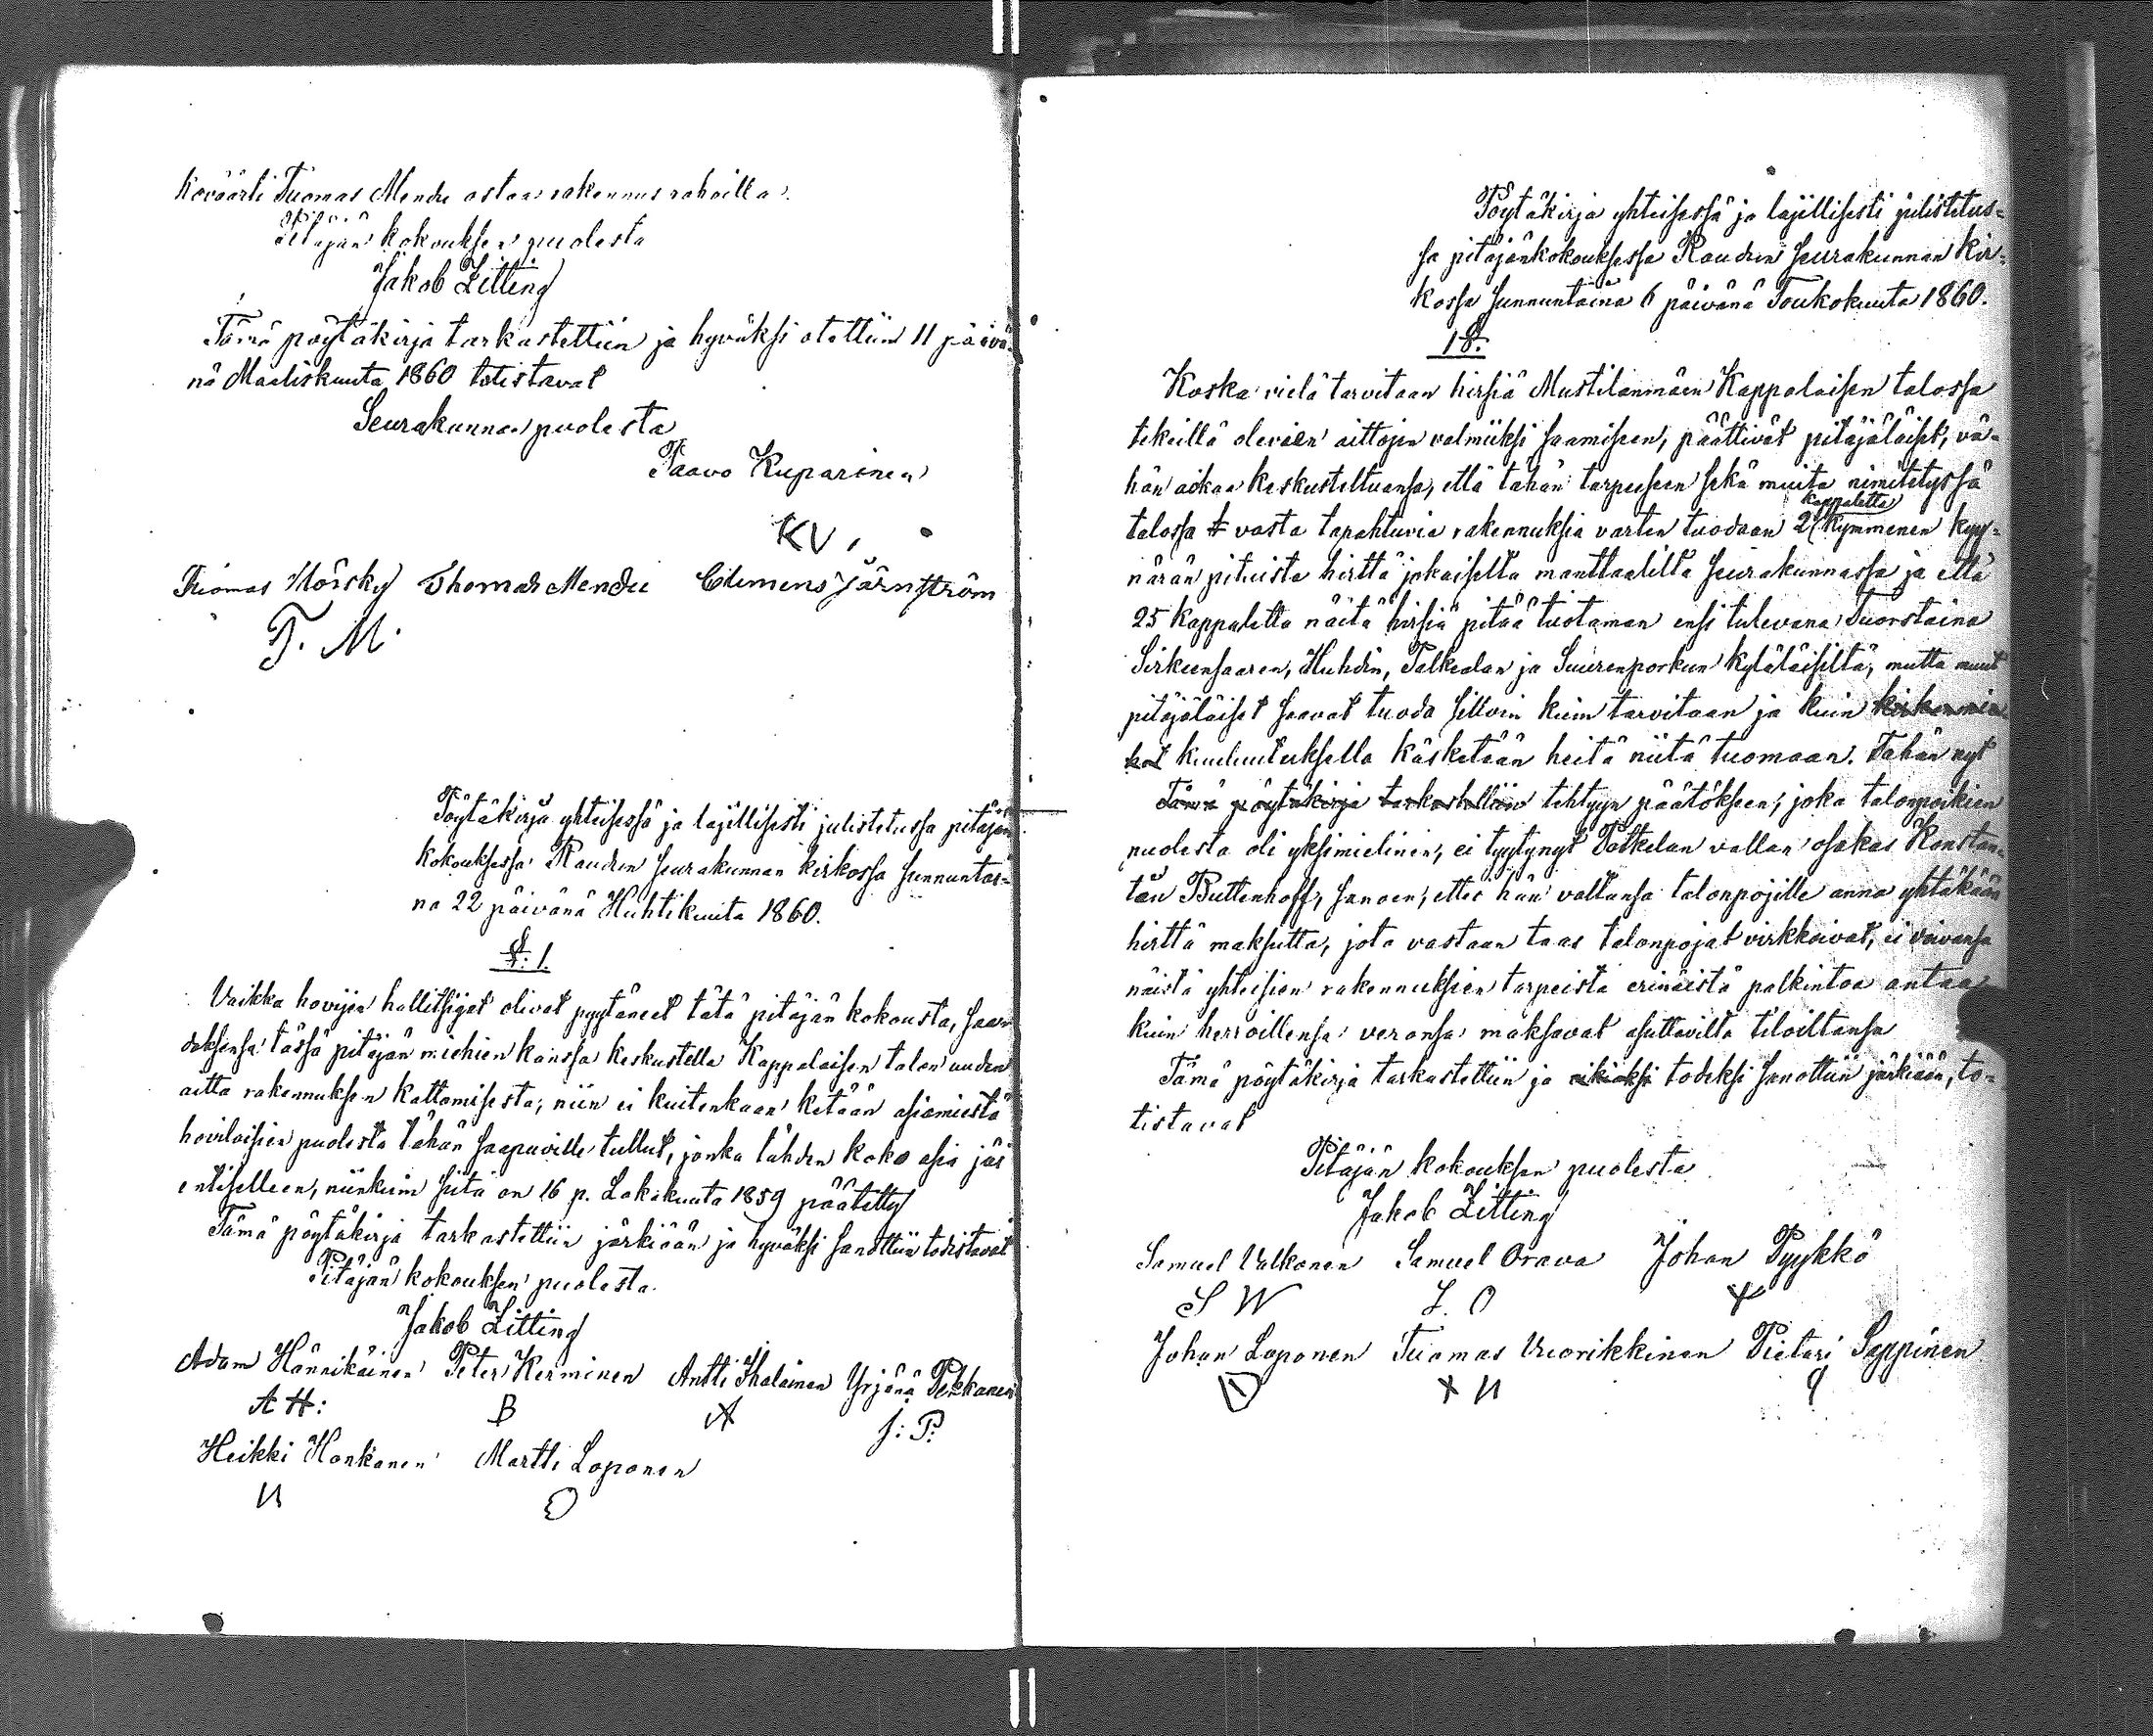 koväärti Tuomas Mendu ostaa rakennus rahoilla.
Pitäjän kokouksen puolesta
Jakob Litting
Tämä pöytäkirja tarkastettiin ja hyväksi otettiin 11 päivä-
nä Maaliskuuta 1860 totistavat
Seurakunnan puolesta
Paavo Kuparinen
KV
Thomas Mörsky Thomas Mendu Clemens Järnström
T. M.
Pöytäkirja yhteisessä ja lajillisesti julistetussa pitäjän
kokouksessa Raudun seurakunnan kirkossa sunnuntai-
na 22 päivänä Huhtikuuta 1860.
§. 1.
Vaikka hovijen hallitsijat olivat pyytäneet tätä pitäjän kokousta, saa-
daksensa tässä pitäjän miehien kanssa keskustella Kappalaisen talon uuden
aitta rakennuksen kattamisesta; niin ei kuitenkaan ketään asiamiestä
hovilaisien puolesta tähän saapuville tullut, jonka tähden koko asia jäi
entiselleen, niinkuin siitä on 16 p. Lokakuuta 1859 päätetty
Tämä pöytäkirja tarkastettiin järkiään ja hyväksi sanottiin todistavat
Pitäjän kokouksen puolesta.
Jakob Litting
Adam Hännikäinen Peter Kerminen Antti Ihalainen Yrjänä Pekkanen
A H: B A J: P.
Heikki Honkanen Martti Loponen
Pöytäkirja yhteisessä ja lajillisesti julistetus-
sa pitäjänkokouksessa Raudun seurakunnan kir-
kossa sunnuntaina 6 päivänä Toukokuuta 1860.
1 §.
Koska vielä tarvitaan hirsiä Mustilanmäen Kappalaisen talossa
tekeillä olevien aittojen valmiiksi saamiseen, päättivät pitäjäläiset, vä-
hän aikaa keskusteltuansa, että tähän tarpeeseen sekä muita nimitetyssä
talossa vasta tapahtuvia rakennuksia varten tuodaan 2 kappaletta kymmenen kyy-
närän pituista hirttä jokaiselta manttaalilta seurakunnassa ja että
25 kappaletta näitä hirsiä pitää tuotaman ensi tulevana Tuorstaina
Sirkeensaaren, Huhdin, Palkealan ja Suurenporkun kyläläisiltä, mutta muut
pitäjäläiset saavat tuoda silloin kuin tarvitaan ja kuin
kuuluutuksella käsketään heitä niitä tuomaan. Tähän nyt
Tämä pöytäkirja tarkastettiin tehtyyn päätökseen, joka talonpoikien
puolesta oli yksimielinen, ei tyytynyt Potkelan vallan osakas Konstan-
tin Buttenhoff, sanoen, ettei hän valtansa talonpojille anna yhtäkään
hirttä maksutta, jota vastaan taas talonpojat virkkoivat, ei voivansa
näistä yhteisien rakennuksien tarpeista erinäistä palkintoa antaa
kuin herroillensa veronsa maksavat asuttavilta tiloiltansa
Tämä pöytäkirja tarkastettiin ja oikiaksi todeksi sanottiin järkiään, to-
tistavat
Pitäjän kokouksen puolesta
Jakob Litting
Samuel Valkonen Samuel Orava Johan Pyykkö
S W S. O
Johan Loponen Tuomas Vuorikkinen Pietari Seppinen